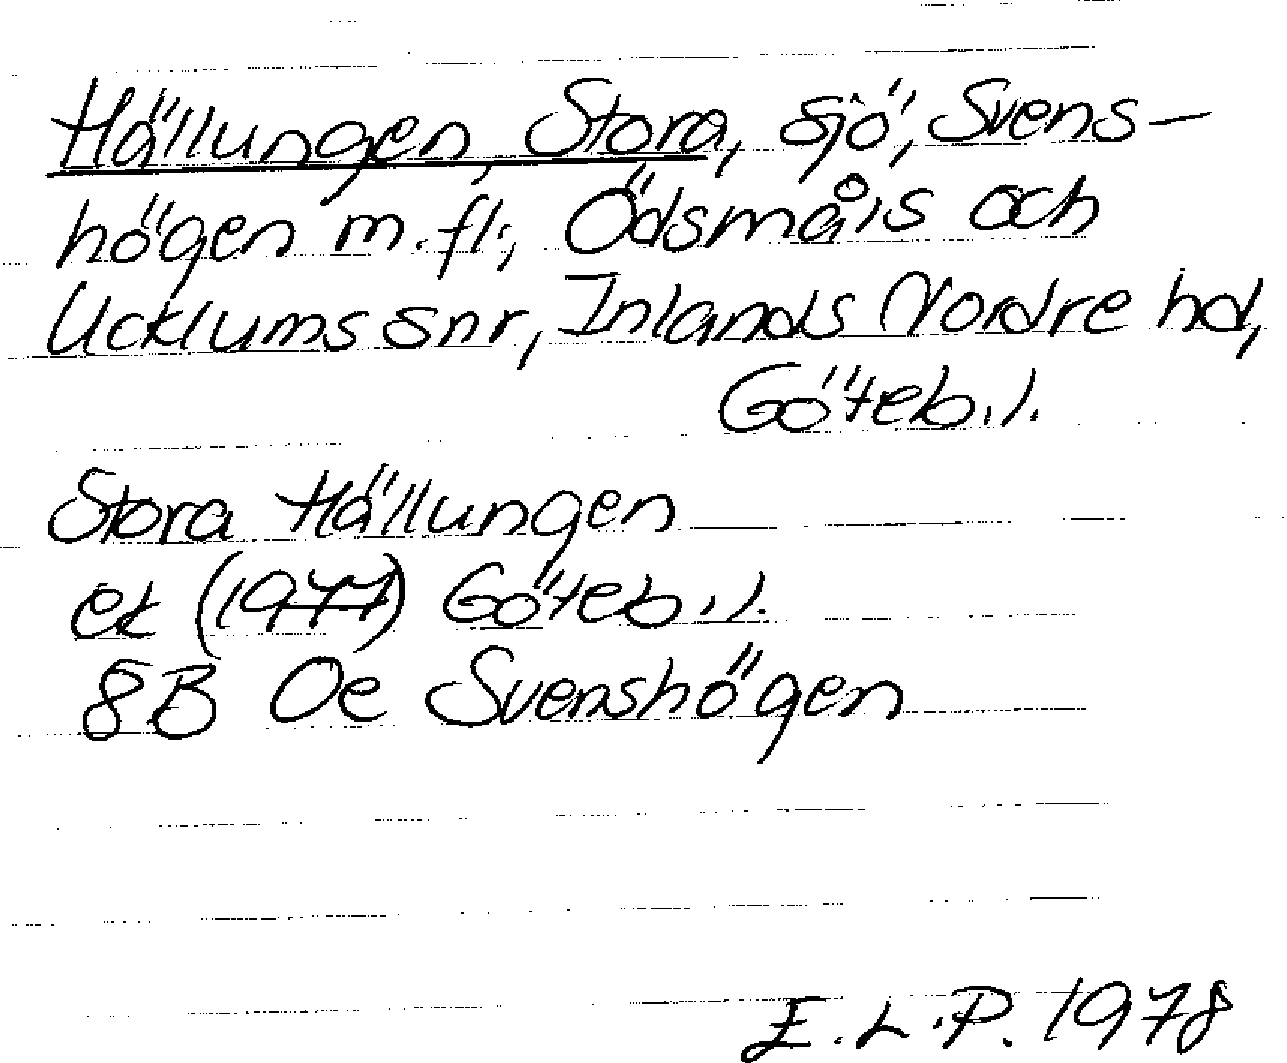 Hällungen, Stora, sjö, Svens-
högen m.fl., Ödsmåls och
Ucklums snr, Inlands Nordre hd,
Göteb.l.
Stora Hällungen
ek (1977) Göteb.l.
8B Oe Svenshögen
E.L.P. 1978